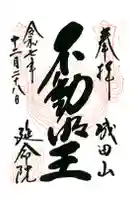 奉拝
成田山
不動明王
令和七年
十二月二十八日
延命院